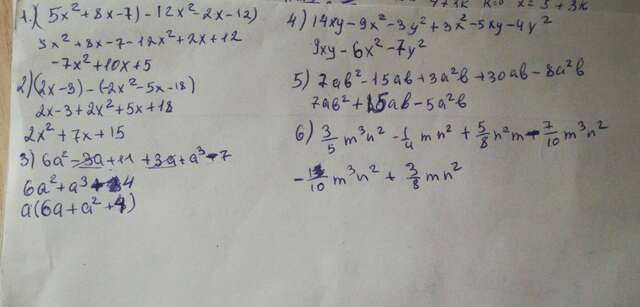 4+3k k=0 x=5+3k
1.) (5x²+8x-7)-12x²-2x-12)
5x²+8x-7-12x²+2x+12
-7x²+10x+5
2) (2x-3)-(-2x²-5x-18)
2x-3+2x²+5x+18
2x²+7x+15
3) 6a²-3a+11+3a+a³-7
6a²+a³+4
a(6a+a²+4)
4) 14xy-9x²-3y²+3x²-5xy-4y²
9xy-6x²-7y²
5) 7ab²-15ab+3a²b+30ab-8a²b
7ab²+15ab-5a²b
6) 3/5 m³n²-1/4 mn²+5/8 n²m-7/10 m³n²
-1/10 m³n²+3/8 mn²